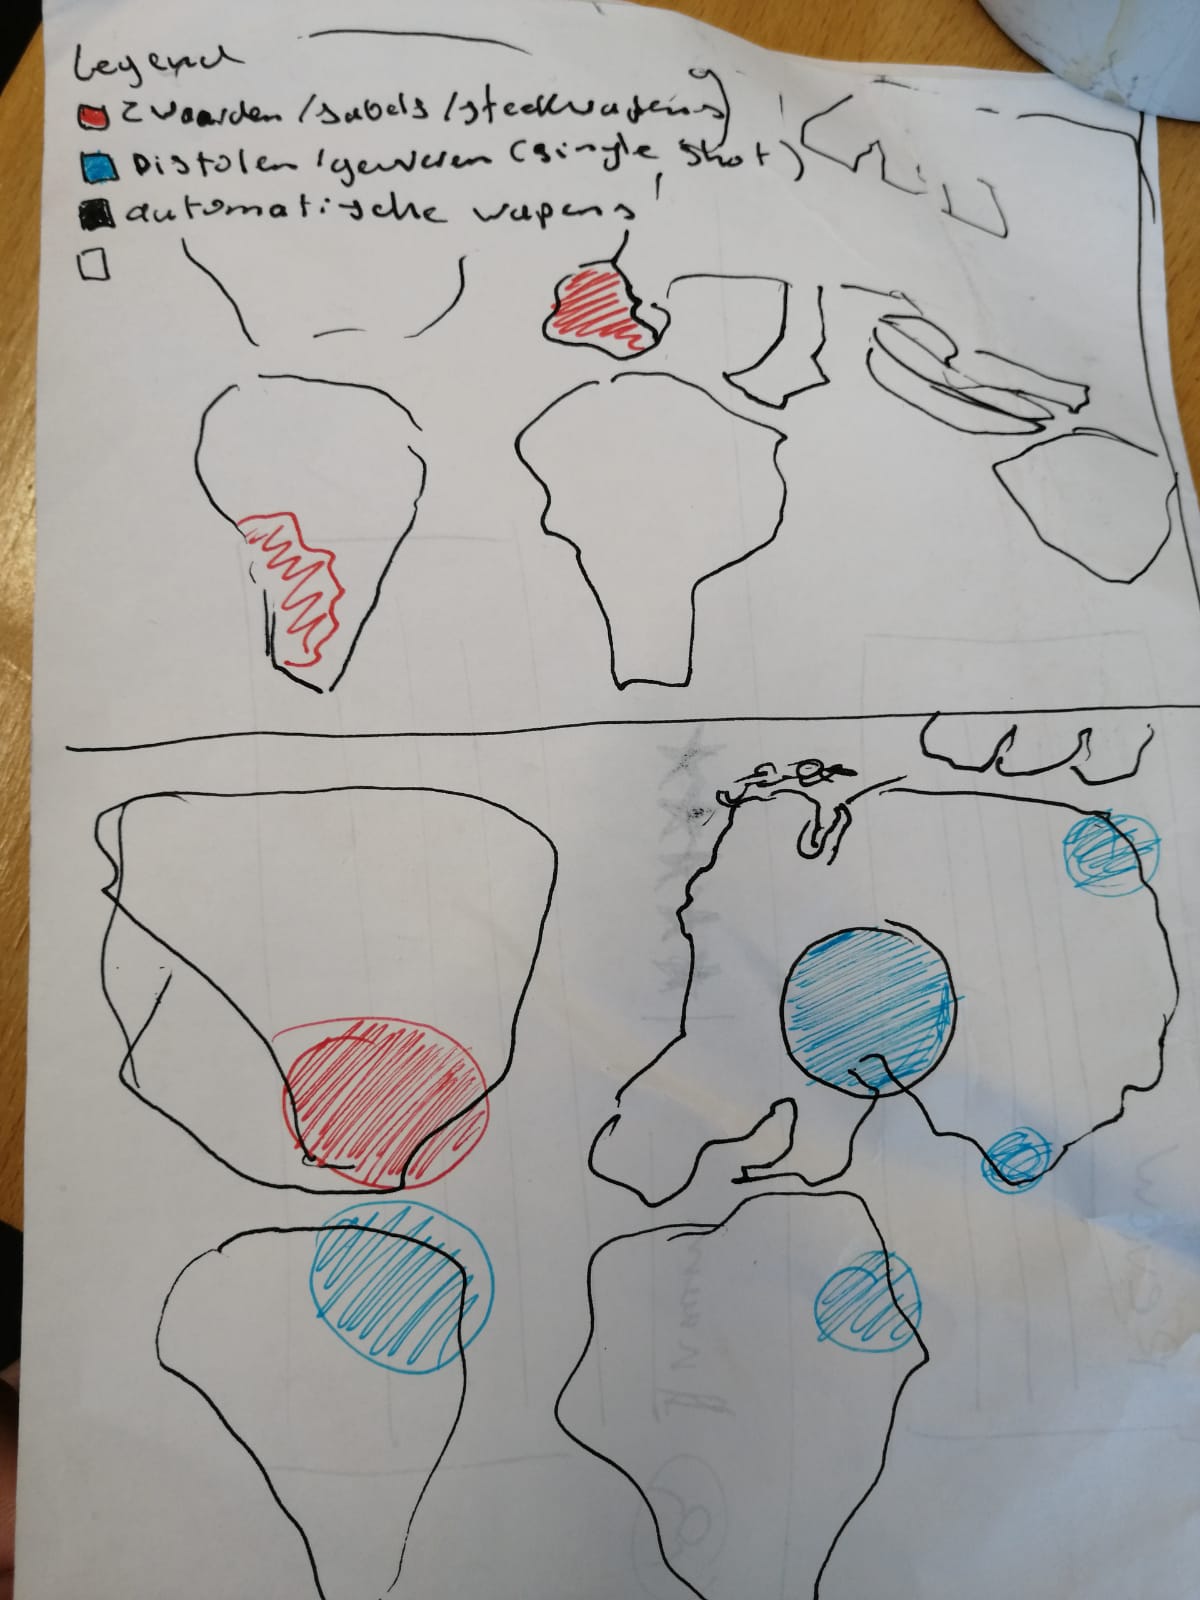 Legend
Zwaarden / sabels / steekwapens
Pistolen / geweren (single shot)
automatische wapens